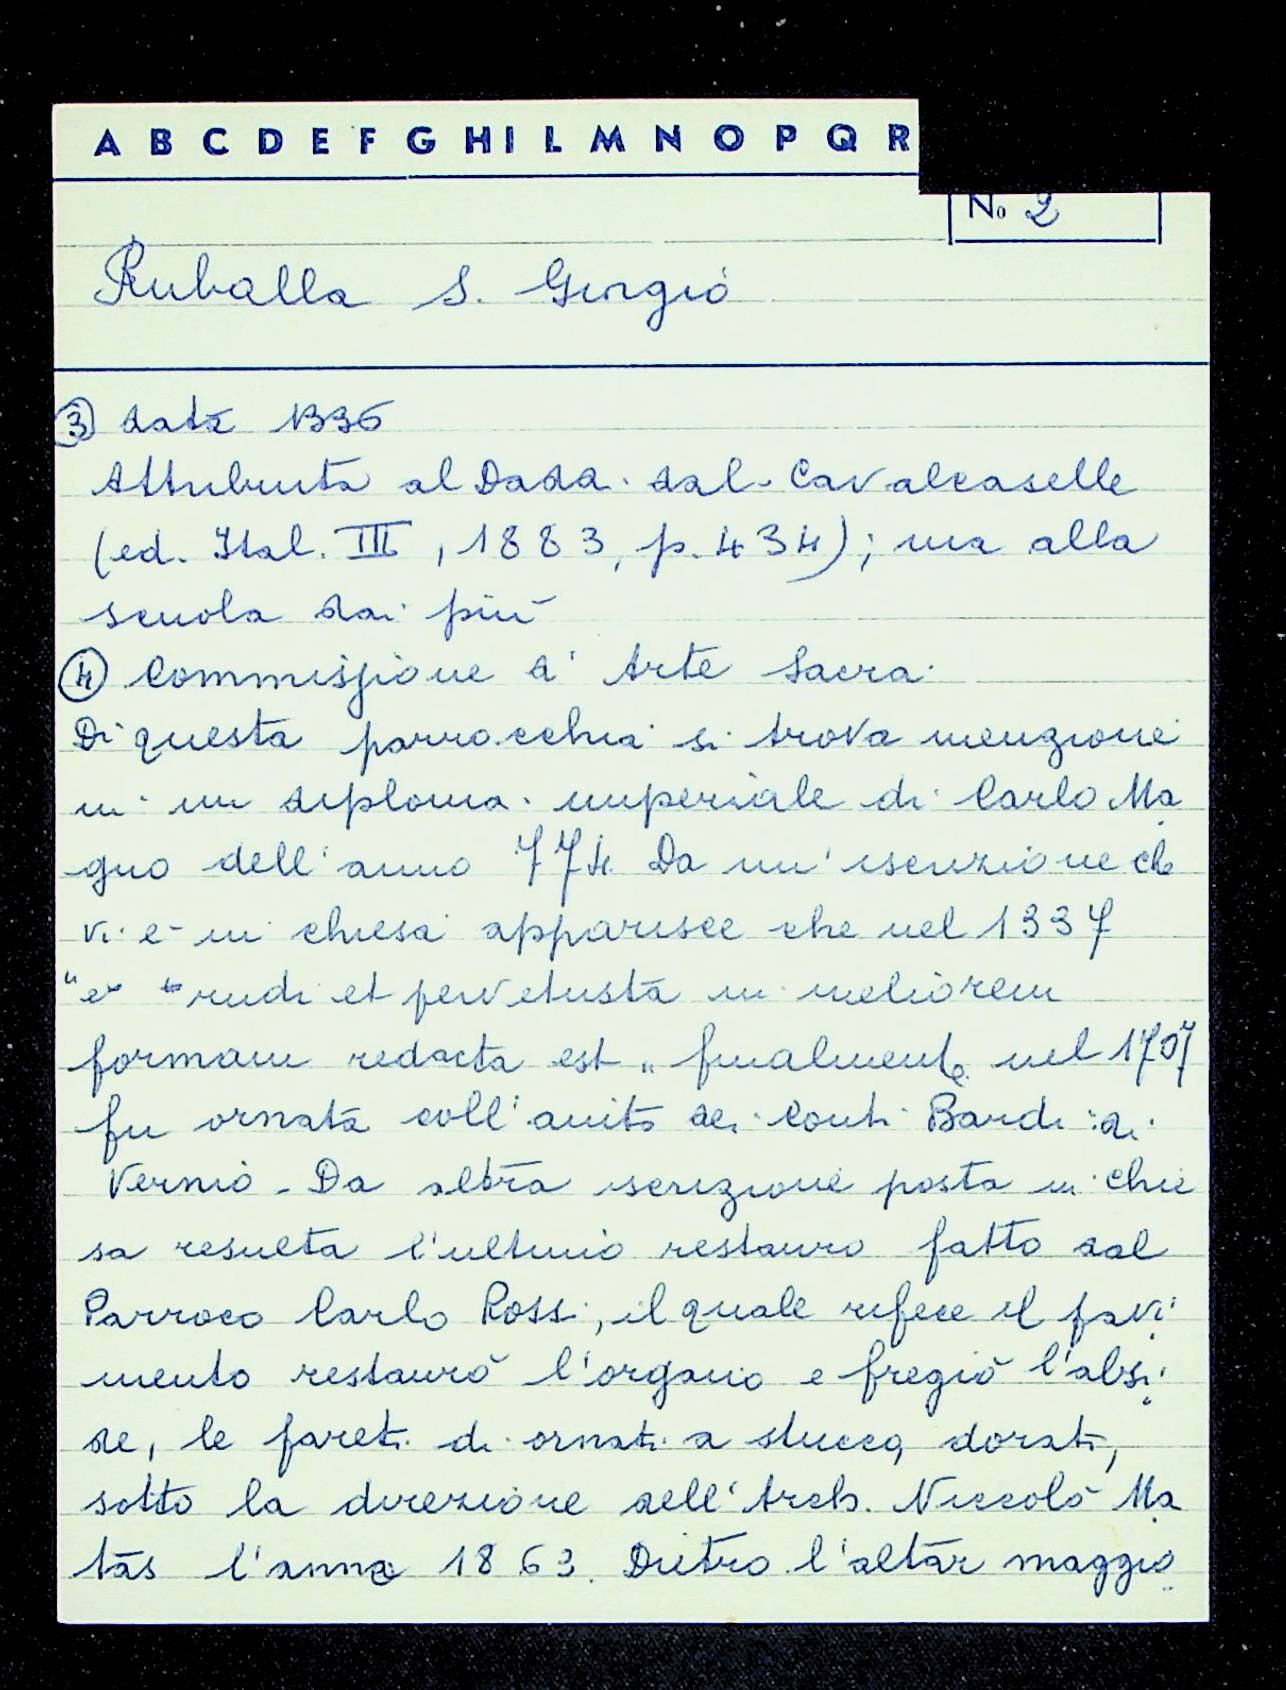 A B C D E F G H I L M N O P Q R
No 2
Ruballa S. Giorgio
③ data 1336
Attribuita al Dada dal Cavalcaselle
(ed. Ital. III, 1883, p. 434); ma alla
scuola dai più
④ Commissione d'Arte Sacra
Di questa parrocchia si trova menzione
in un diploma imperiale di Carlo Ma
gno dell'anno 774. Da un'iscrizione che
vi è in chiesa apparisce che nel 1337
"e rudi et pervetusta in meliorem
formam redacta est" finalmente nel 1707
fu ornata coll'aiuto dei Conti Bardi di
Vernio - Da altra iscrizione posta in chie
sa resulta l'ultimo restauro fatto dal
Parroco Carlo Rossi, il quale rifece il pavi
mento restaurò l'organo e fregiò l'absi
de, le pareti di ornati a stucco, dorati,
sotto la direzione dell'Arch. Niccolò Ma
tas l'anno 1863. Dietro l'altar maggio